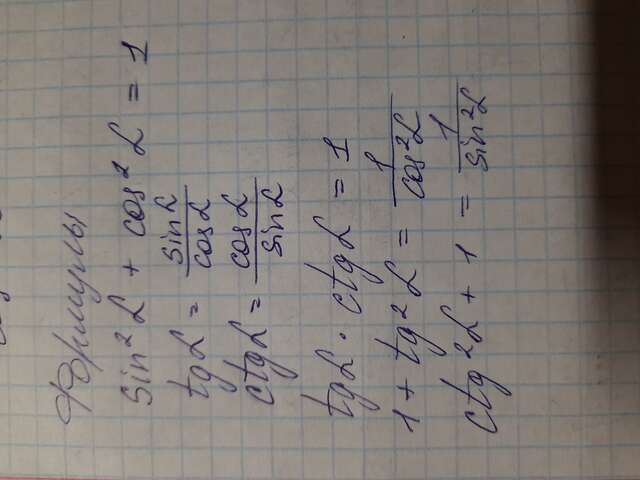 Формулы
sin² α + cos² α = 1
tg α = sin α / cos α
ctg α = cos α / sin α
tg α · ctg α = 1
1 + tg² α = 1 / cos² α
ctg² α + 1 = 1 / sin² α